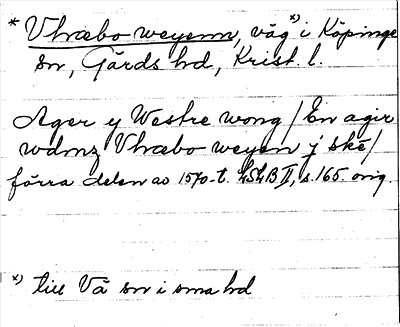 * Vhræbo weyenn, väg *) i Köpinge
sn, Gärds hd, Krist. l.
Ager y Westre wong / En agir
wdmz Vhræbo weyen j skē /
förra delen av 1570-t. LSLB II, s. 165. orig.
*) till Vä sn i sma hd